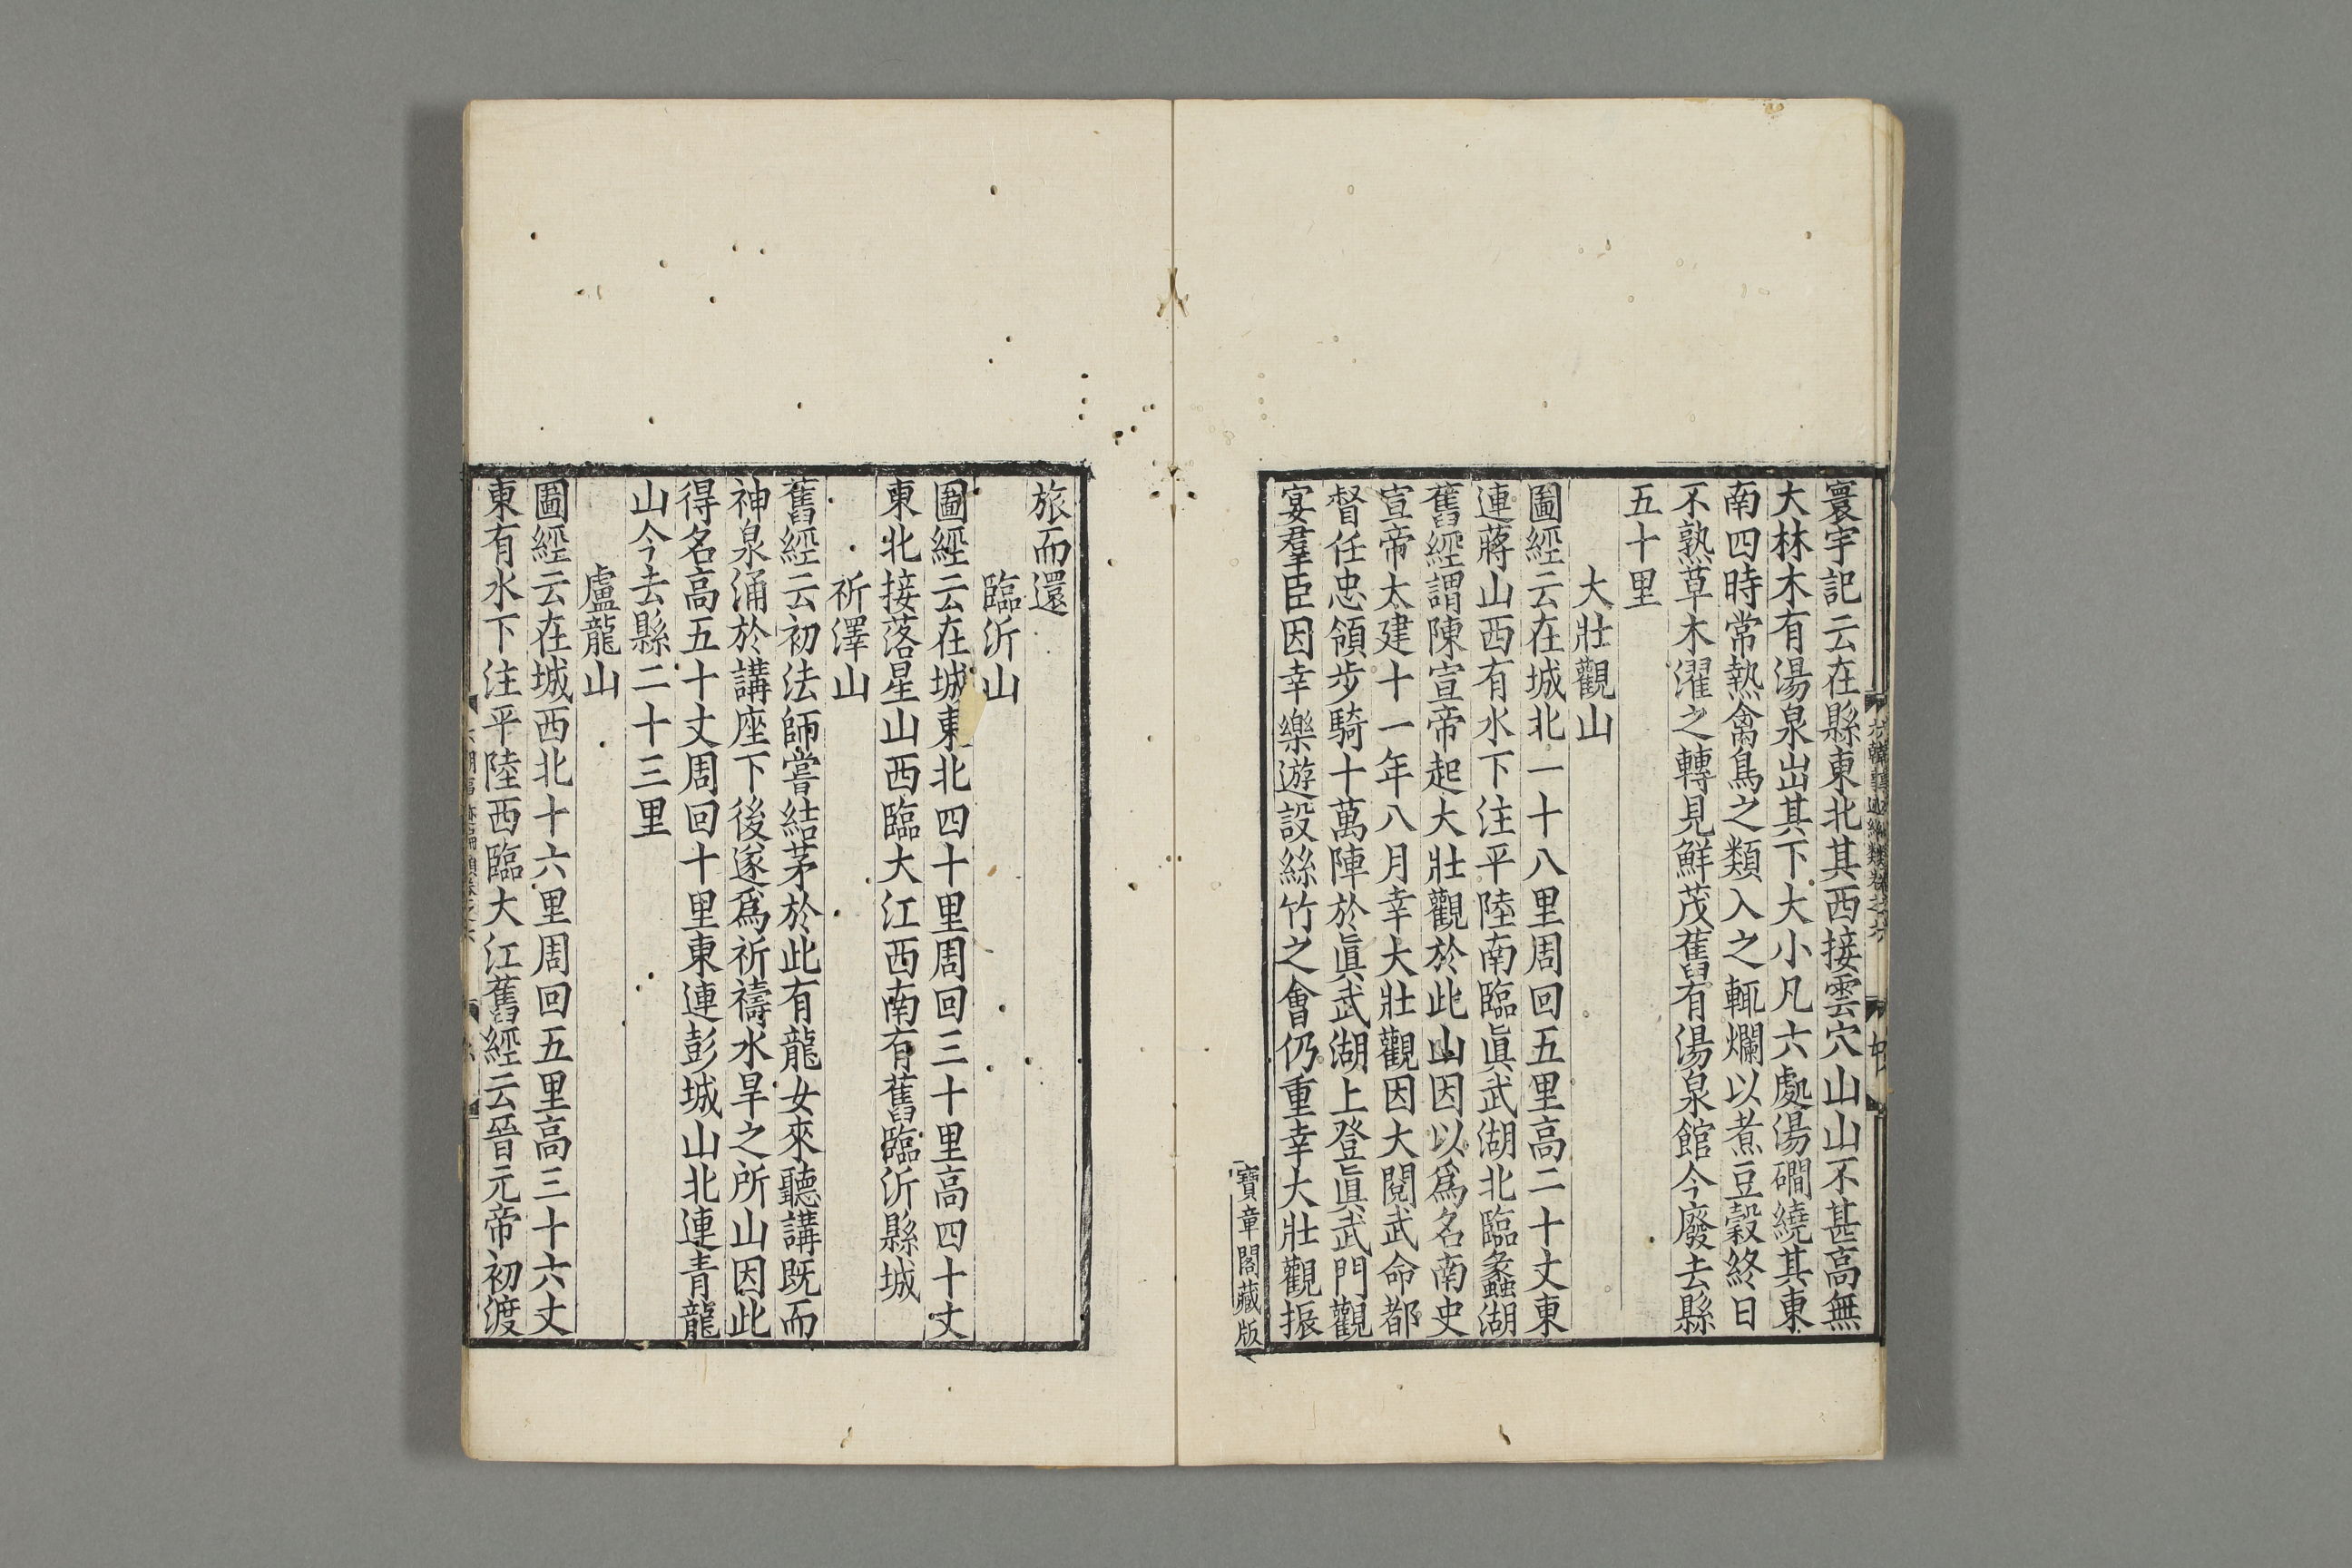 寰宇記云在縣東北其西接雲穴山山不甚高無
大林木有湯泉出其下大小凡六處湯磵繞其東
南四時常熱禽鳥之類入之輒爛以煮豆穀終日
不熟草木濯之轉見鮮茂舊有湯泉館今廢去縣
五十里
大壯觀山
圖經云在城北一十八里周回五里高二十丈東
連蔣山西有水下注平陸南臨眞武湖北臨蠡湖
舊經謂陳宣帝起大壯觀於此山因以爲名南史
宣帝太建十一年八月幸大壯觀因大閱武命都
督任忠領步騎十萬陣於眞武湖上登眞武門觀
宴羣臣因幸樂遊設絲竹之會仍重幸大壯觀振
寶章閣藏版
旅而還
臨沂山
圖經云在城東北四十里周回三十里高四十丈
東北接落星山西臨大江西南有舊臨沂縣城
祈澤山
舊經云初法師嘗結茅於此有龍女來聽講既而
神泉涌於講座下後遂爲祈禱水旱之所山因此
得名高五十丈周回十里東連彭城山北連青龍
山今去縣二十三里
盧龍山
圖經云在城西北十六里周回五里高三十六丈
東有水下注平陸西臨大江舊經云晉元帝初渡